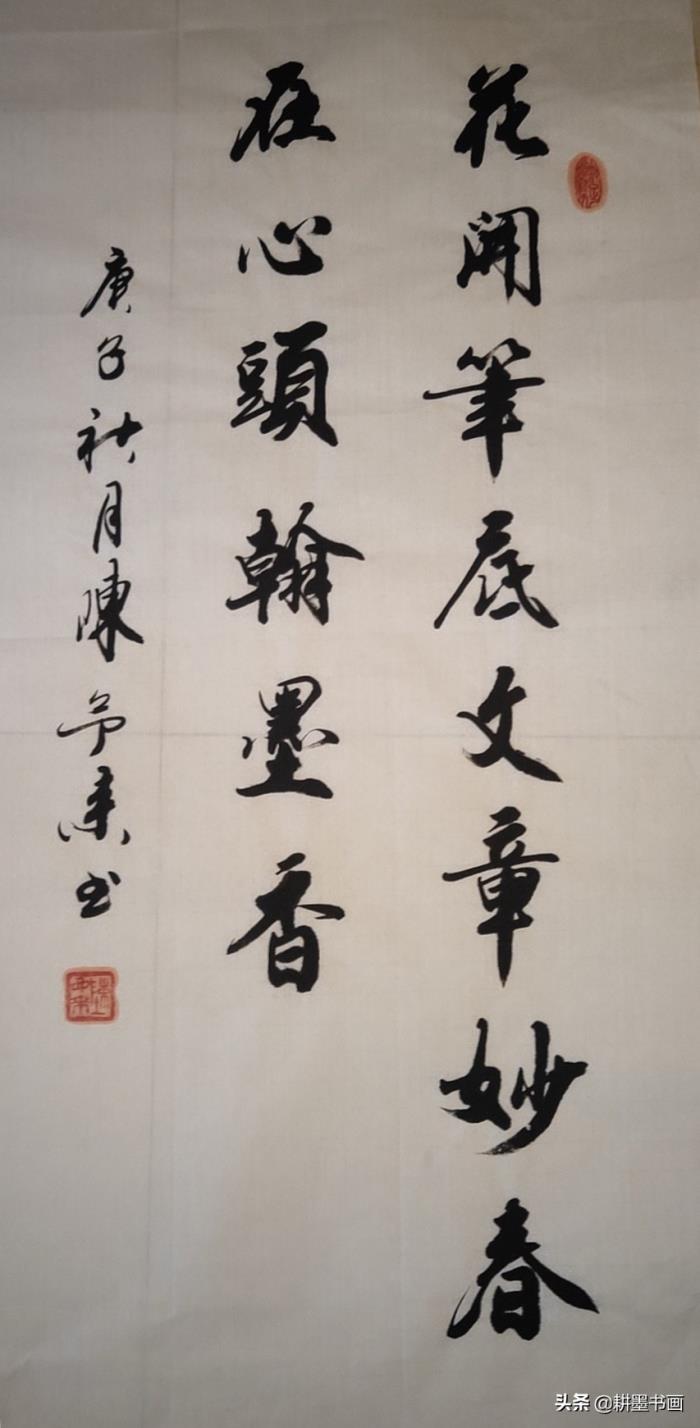 花開筆底文章妙春
在心頭翰墨香
庚子秋月陳予書
头条 @耕墨书画